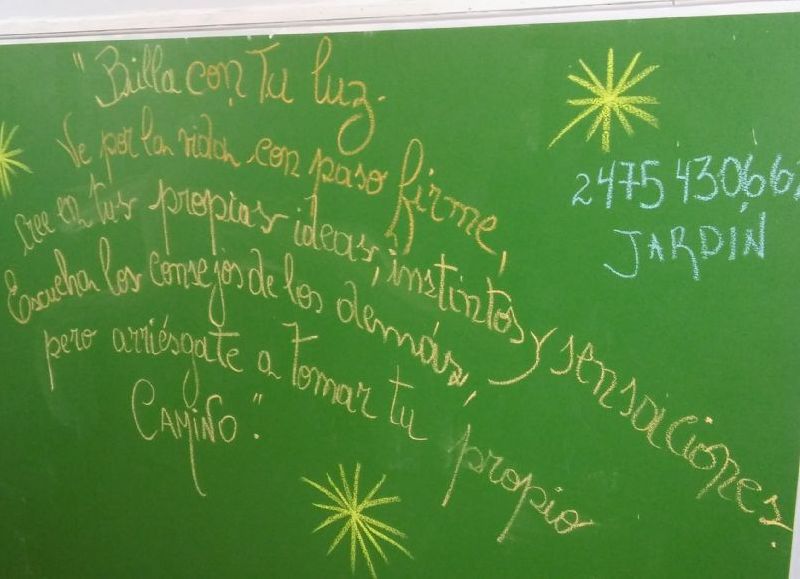 "Brilla con Tu luz.
Ve por la vida con paso firme,
cree en tus propias ideas, instintos y sensaciones.
Escucha los consejos de los demás,
pero arriésgate a Tomar tu propio
CAMINO."
2475 430662
JARDÍN